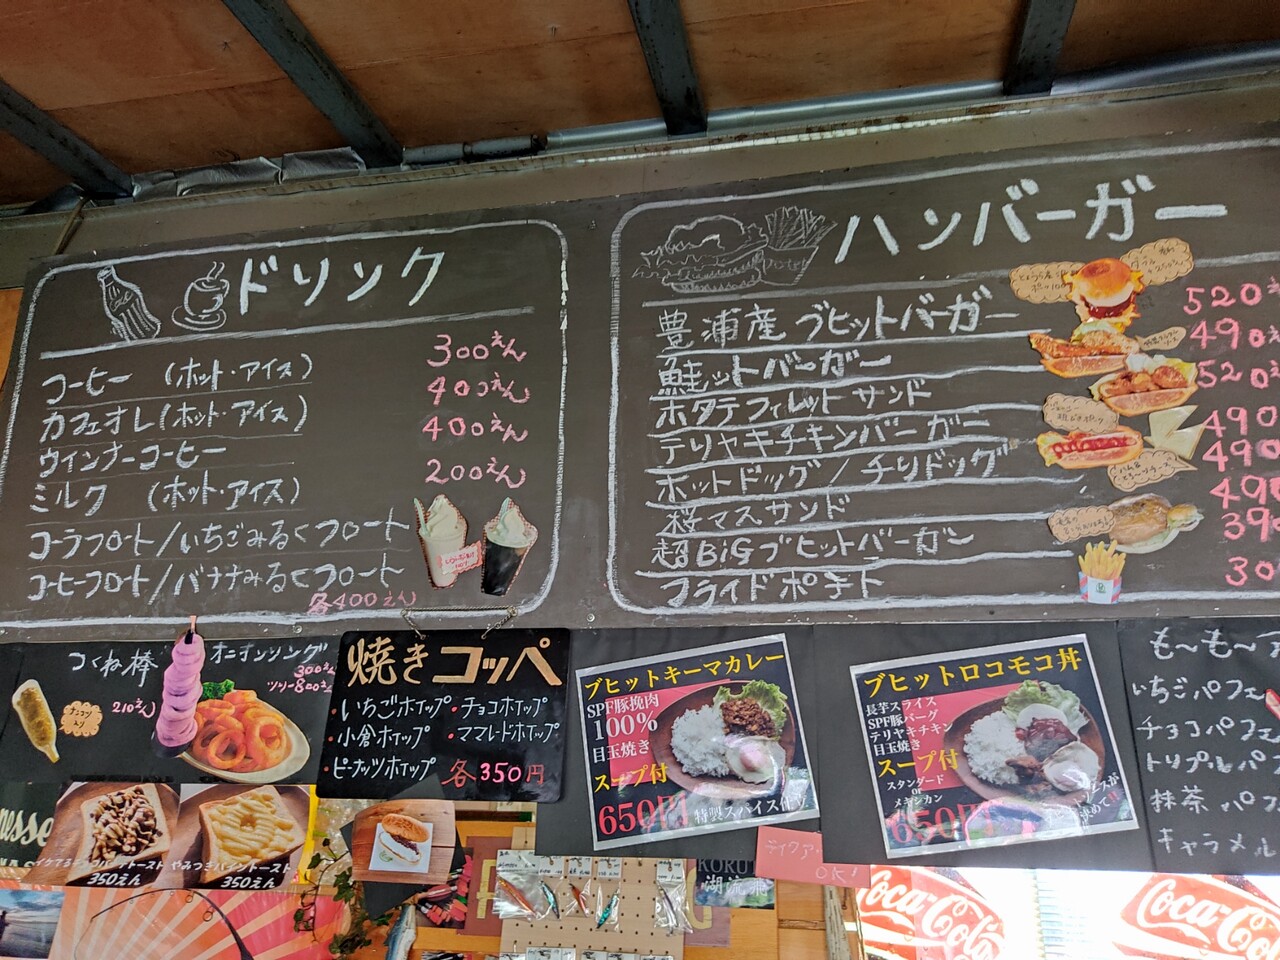 ドリンク
コーヒー (ホット・アイス) 300えん
カフェオレ(ホット・アイス) 400えん
ウインナーコーヒー 400えん
ミルク (ホット・アイス) 200えん
コーラフロート/いちごみるくフロート
コーヒーフロート/バナナみるくフロート
各400えん
ハンバーガー
豊浦産ブヒットバーガー 520
鮭ットバーガー 490
ホタテフィレットサンド 520
テリヤキチキンバーガー 490
ホットドッグ/チリドッグ 490
桜マスサンド
超BiGブヒットバーガー
フライドポテト
つくね棒
210えん
オニオンリング
300えん
ツリー800えん
焼きコッペ
・いちごホイップ ・チョコホイップ
・小倉ホイップ ・ママレードホイップ
・ピーナッツホイップ 各350円
ブヒットキーマカレー
SPF豚挽肉
100%
目玉焼き
スープ付
650円 特製スパイス付
ブヒットロコモコ丼
長芋スライス
SPF豚バーグ
テリヤキチキン
目玉焼き
スープ付
スタンダード
or
メキシカン
650円
も〜も〜
いちごパフェ
チョコパフェ
トリプルパフ
抹茶パフ
キャラメル
350えん
やみつきパイントースト
350えん
テイクア
OK!
湖流
Coca-Cola
Coca-Cola